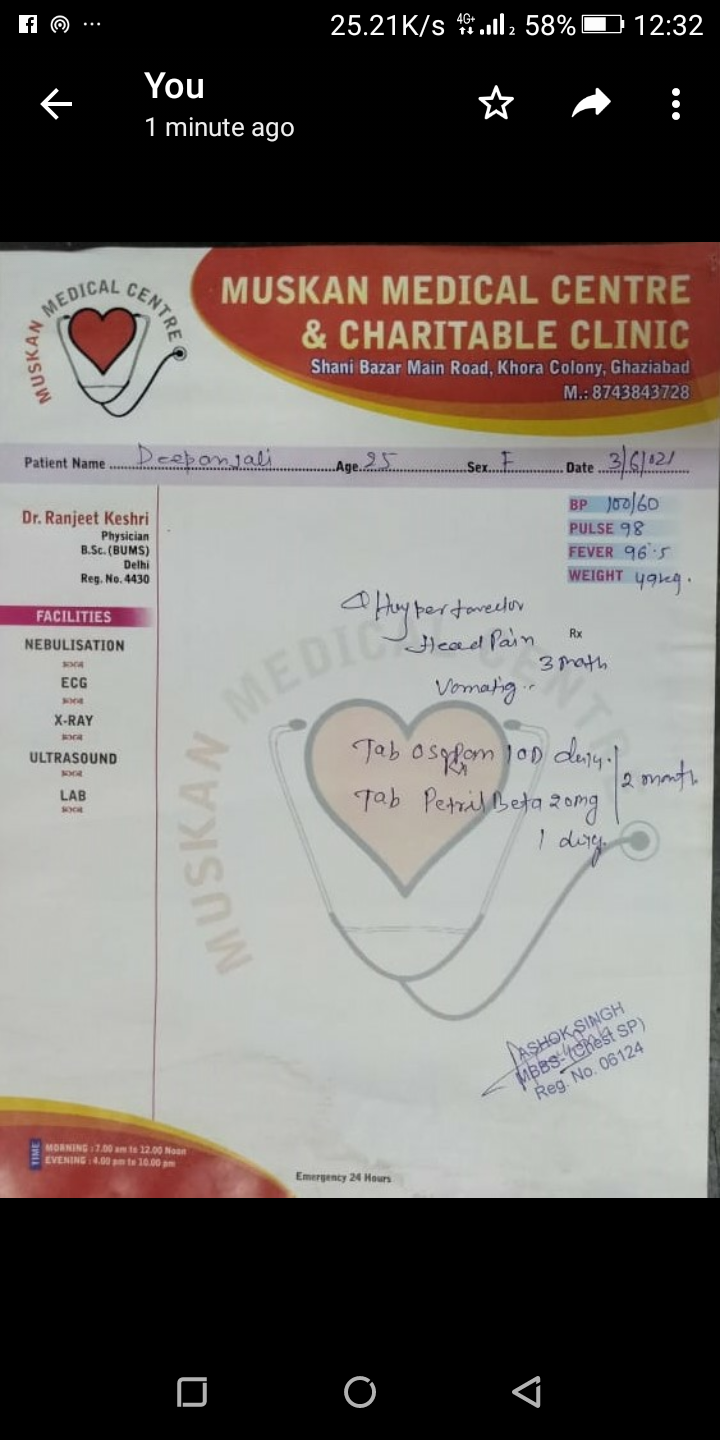 25.21K/s 4G+ 2 58% 12:32
You
1 minute ago
MUSKAN MEDICAL CENTRE
MUSKAN MEDICAL CENTRE
& CHARITABLE CLINIC
Shani Bazar Main Road, Khora Colony, Ghaziabad
M.: 8743843728
Patient Name Deepanjali Age 25 Sex F Date 3/6/021
Dr. Ranjeet Keshri
Physician
B.Sc. (BUMS)
Delhi
Reg. No. 4430
BP 100/60
PULSE 98
FEVER 96.5
WEIGHT 49kg.
FACILITIES
NEBULISATION
ECG
X-RAY
ULTRASOUND
LAB
Rx
Head Pain
3 math
Vomatig
Tab 10D
Tab Petril Beta 20mg
2 month
1
MUSKAN MEDICAL CENTRE
ASHOK SINGH
MBBS-(Chest SP)
Reg. No. 06124
TIME
MORNING : 7.00 am to 12.00 Noon
EVENING : 4.00 pm to 10.00 pm
Emergency 24 Hours